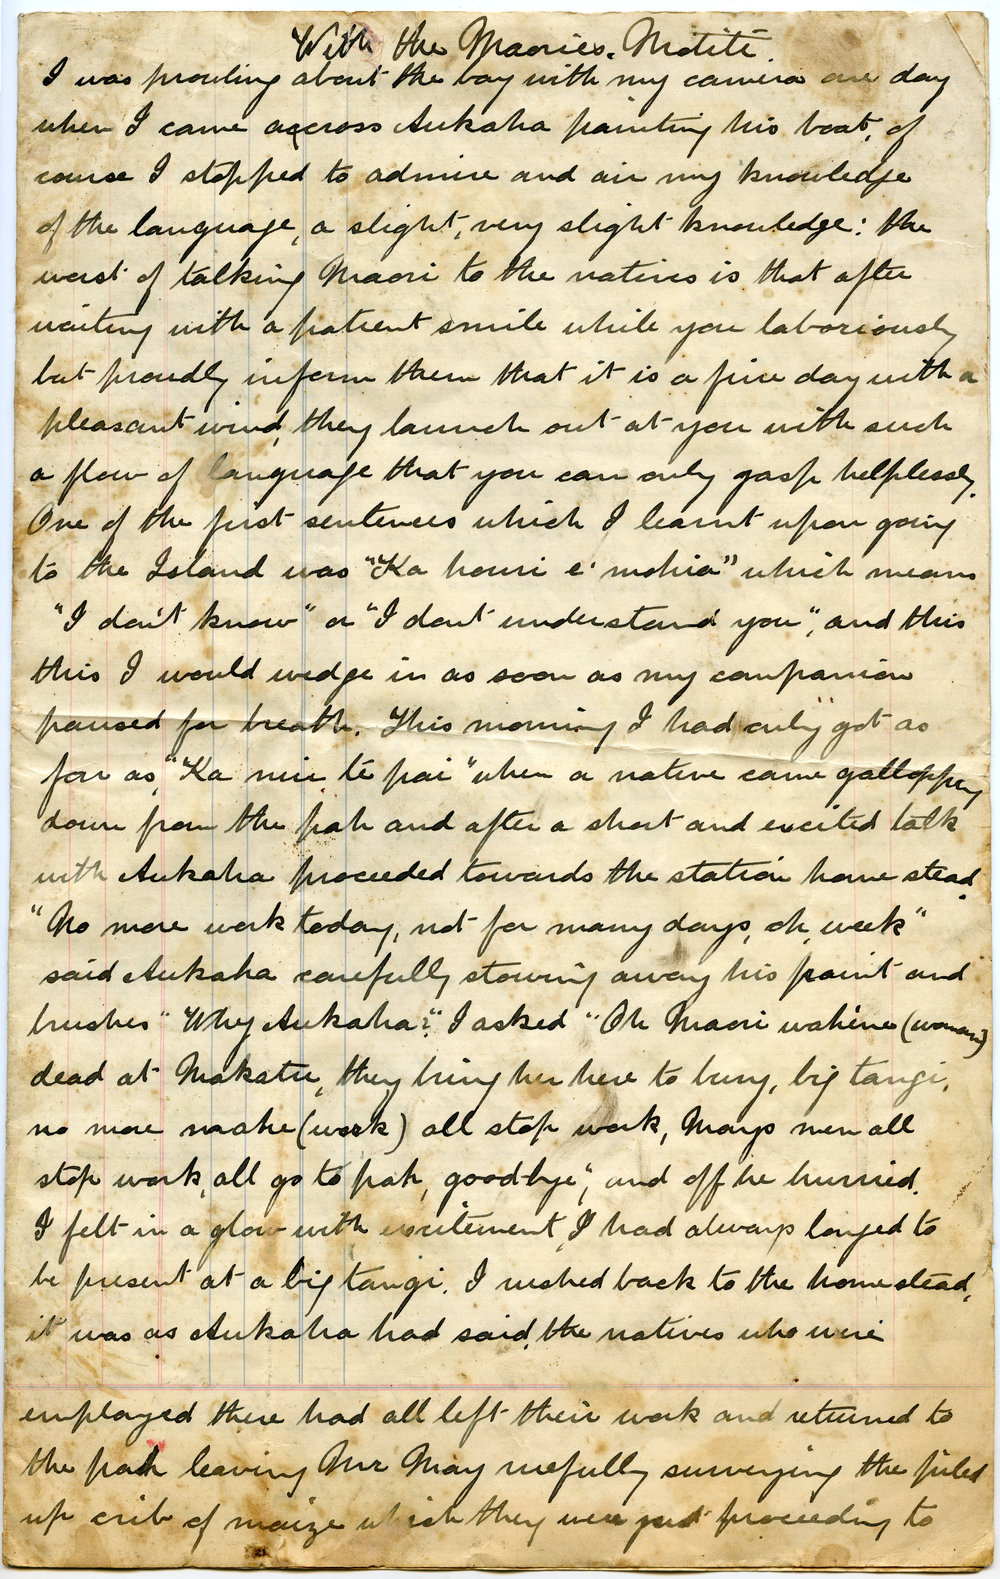 With the Maories. Motiti
I was prowling about the bay with my camera one day
when I came accross Aukaha painting his boat, of
course I stopped to admire and air my knowledge
of the language, a slight, very slight knowledge: the
worst of talking Maori to the natives is that after
waiting with a patient smile while you laboriously
but proudly inform them that it is a fine day with a
pleasant wind, they launch out at you with such
a flow of language that you can only gasp helplessly.
One of the first sentences which I learnt upon going
to the Island was "Ka houri e' mohia" which means
"I don't know" or "I dont understand you", and this
this I would wedge in as soon as my companion
paused for breath. This morning I had only got as
far as, "Ka nui te pai" when a native came gallopping
down from the pah and after a short and excited talk
with Aukaha proceeded towards the station home stead.
"No more work today, not for many days, oh, week"
said Aukaha carefully stowing away his paint and
brushes "Why Aukaha?" I asked "Oh Maori wahine (woman)
dead at Maketu, they bring her here to bury, big tangi,
no more mahe (work) all stop work, Mays men all
stop work, all go to pah, goodbye", and off he hurried.
I felt in a glow with excitement, I had always longed to
be present at a big tangi. I rushed back to the homestead,
it was as Aukaha had said, the natives who were
employed there had all left their work and returned to
the pah leaving Mr May ruefully surveying the piled
up crib of maize which they were just proceeding to